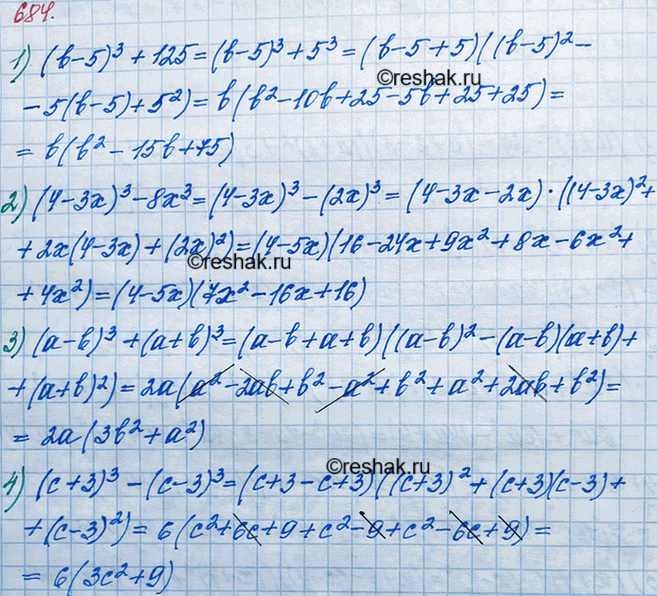 684.
1) (b-5)³ + 125 = (b-5)³ + 5³ = (b-5+5)((b-5)² -
©reshak.ru
- 5(b-5) + 5²) = b(b² - 10b + 25 - 5b + 25 + 25) =
= b(b² - 15b + 75)
2) (4-3x)³ - 8x³ = (4-3x)³ - (2x)³ = (4-3x-2x) · ((4-3x)² +
+ 2x(4-3x) + (2x)²) = (4-5x)(16 - 24x + 9x² + 8x - 6x² +
©reshak.ru
+ 4x²) = (4-5x)(7x² - 16x + 16)
3) (a-b)³ + (a+b)³ = (a-b+a+b)((a-b)² - (a-b)(a+b) +
+ (a+b)²) = 2a(a² - 2ab + b² - a² + b² + a² + 2ab + b²) =
= 2a(3b² + a²)
©reshak.ru
4) (c+3)³ - (c-3)³ = (c+3-c+3)((c+3)² + (c+3)(c-3) +
+ (c-3)²) = 6(c² + 6c + 9 + c² - 9 + c² - 6c + 9) =
= 6(3c² + 9)